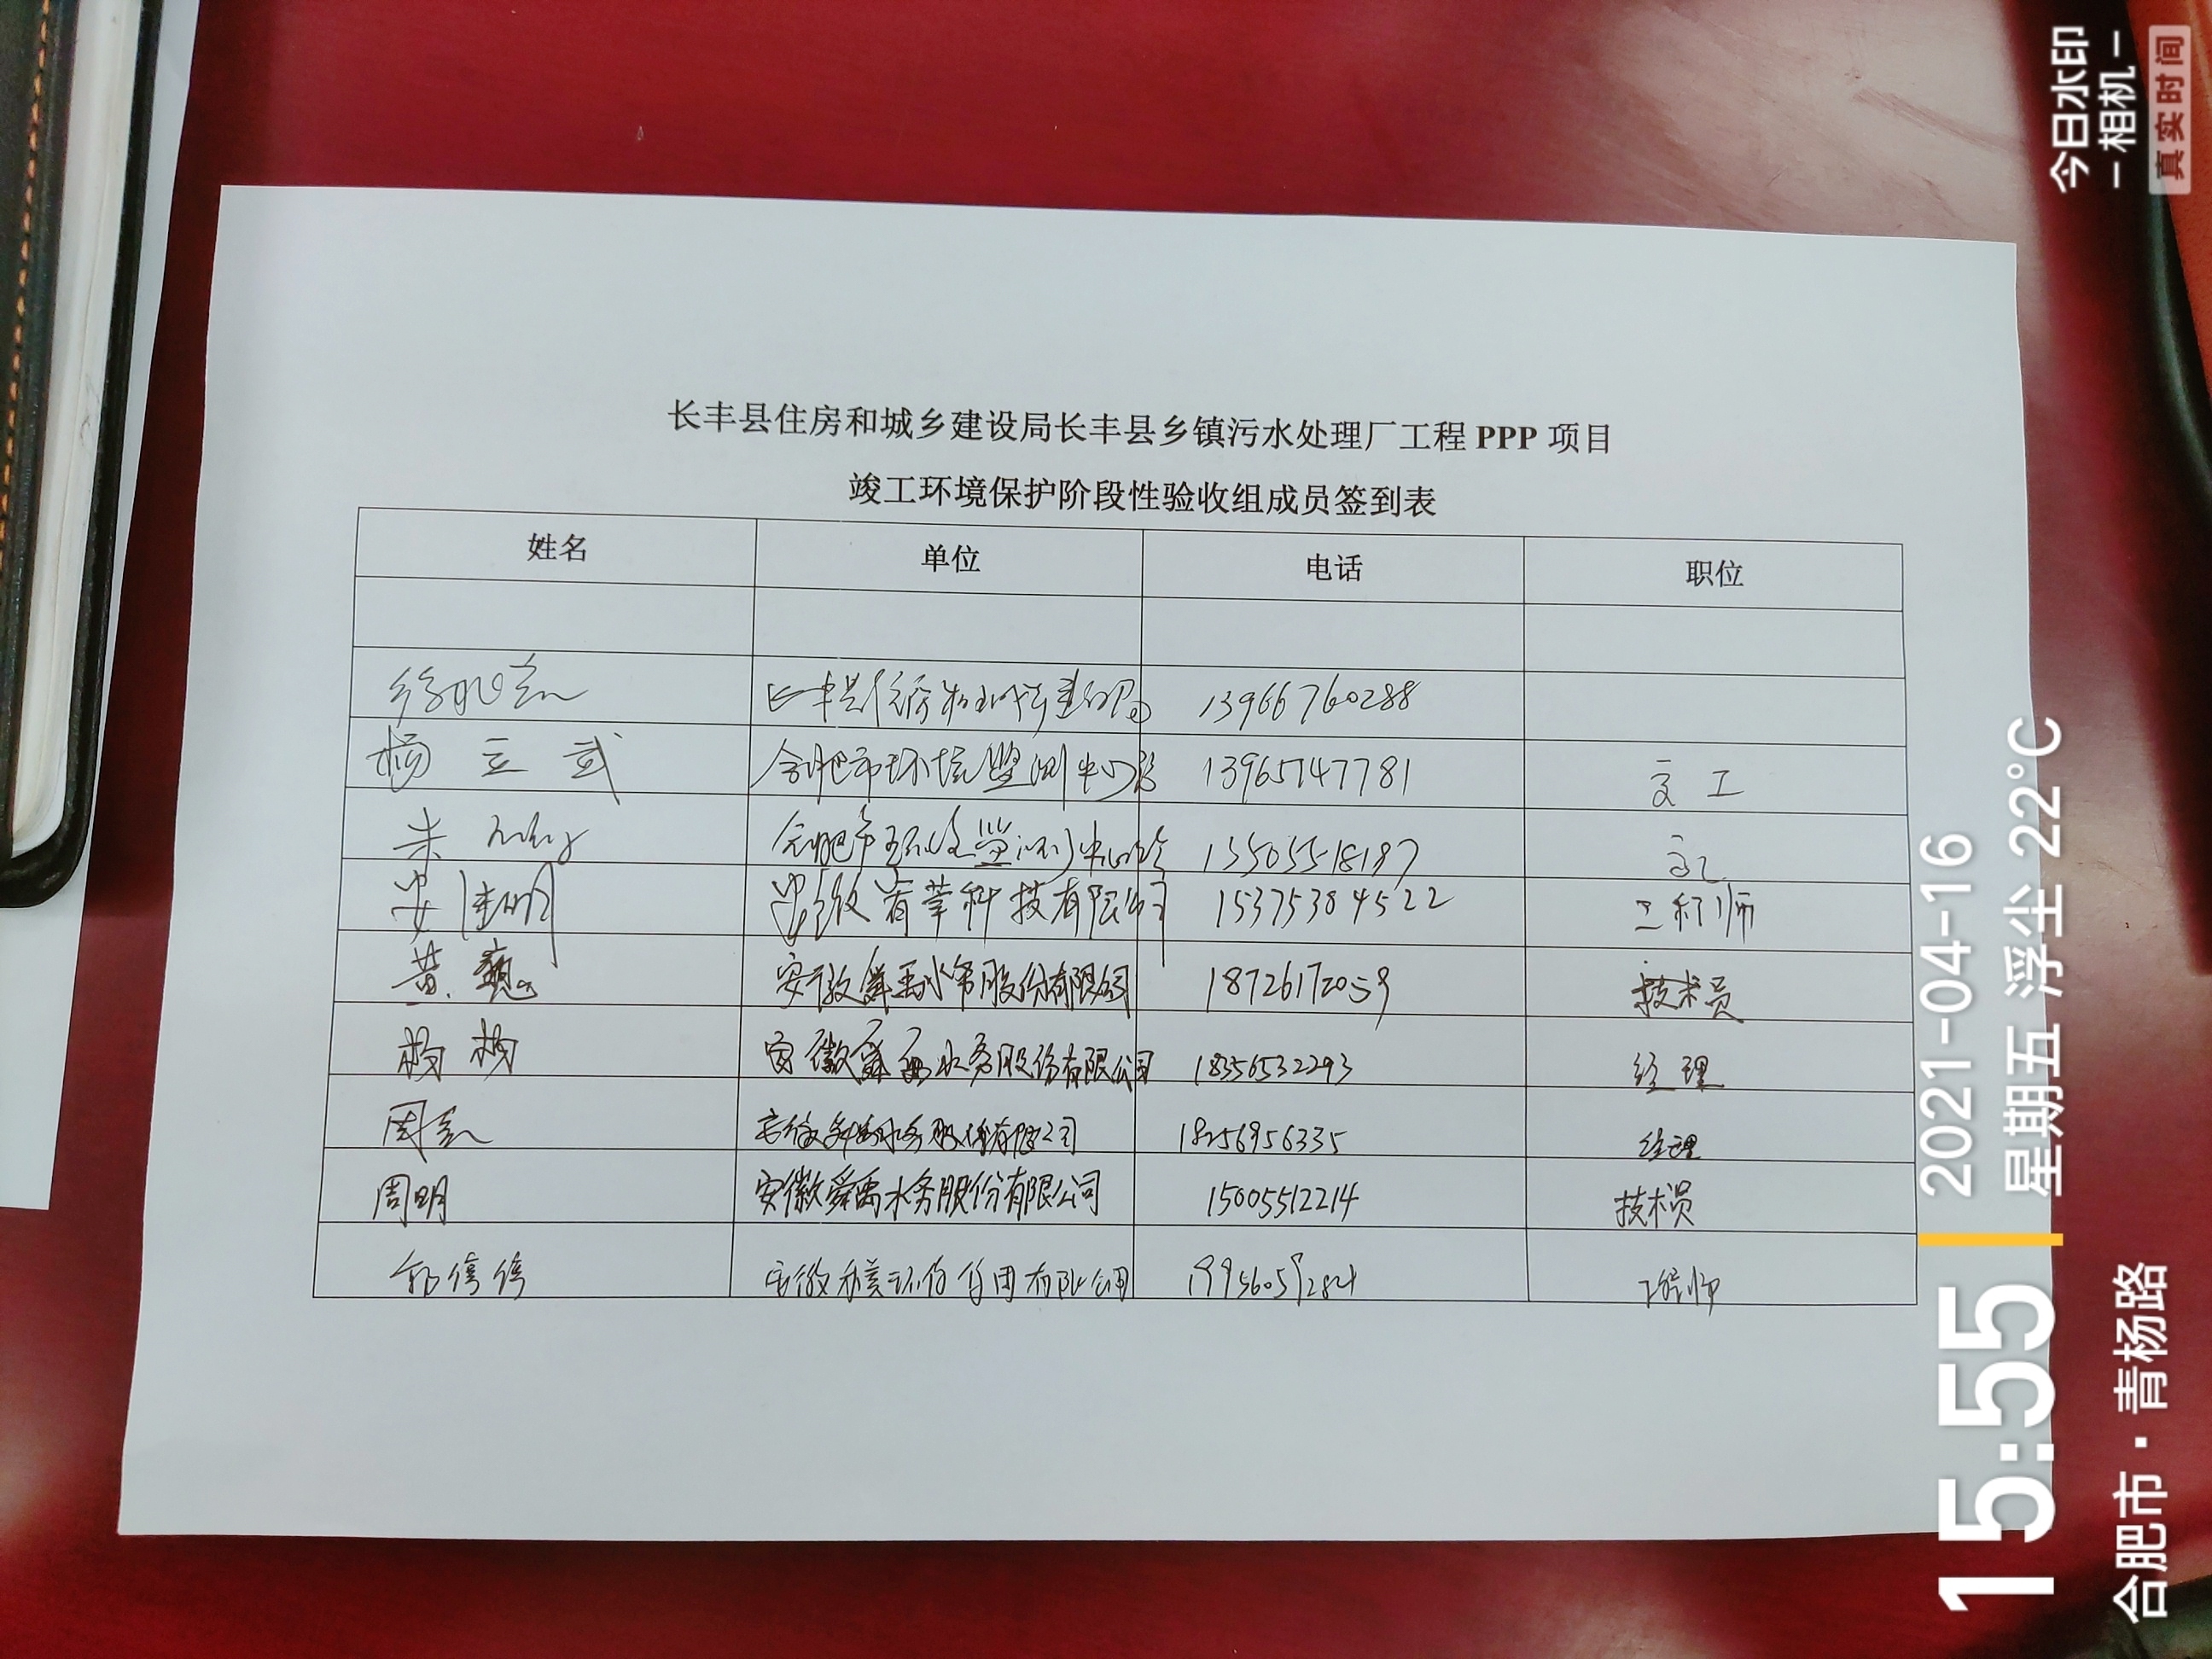 长丰县住房和城乡建设局长丰县乡镇污水处理厂工程 PPP 项目
竣工环境保护阶段性验收组成员签到表
姓名 单位 电话 职位
长丰县住房和城乡建设局 13966760288
杨立武 合肥市环境监测中心站 13965147781 高工
朱 合肥市环境监测中心站 13505518197 高工
安徽省 科技有限公司 15375384522 工程师
黄巍 安徽舜禹水务股份有限公司 技术员
杨杨 安徽舜禹水务股份有限公司 18356532293 经理
周 安徽舜禹水务股份有限公司 18256956335 经理
周明 安徽舜禹水务股份有限公司 15005512214 技术员
郭倩倩 安徽 环保集团有限公司 工程师
今日水印
-相机-
真实时间
15:55
2021-04-16
星期五 浮尘 22°C
合肥市·青杨路